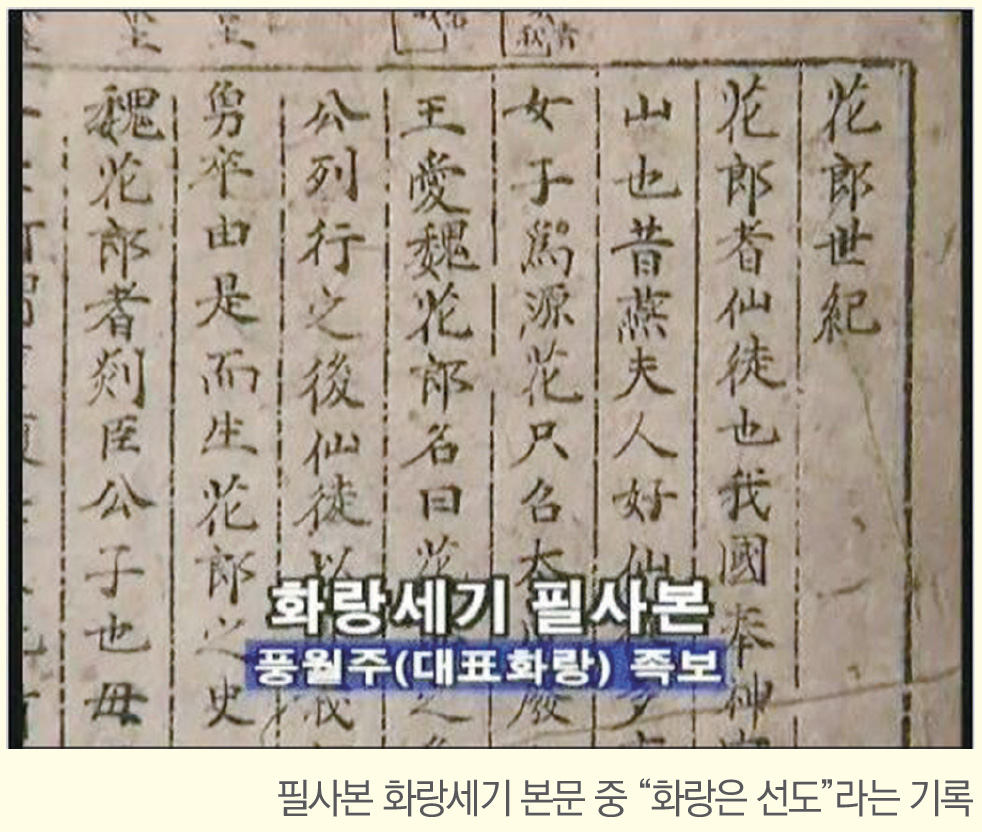 花郎世紀
花郎者仙徒也我國奉神
山也昔燕夫人好仙
女子爲源花只召太 廢
王愛魏花郎名曰花 之
公列行之後仙徒以 我
舅卒由是而生花郎之史
魏花郎者剡臣公子也母
화랑세기 필사본
풍월주(대表화랑) 족보
필사본 화랑세기 본문 중 “화랑은 선도”라는 기록